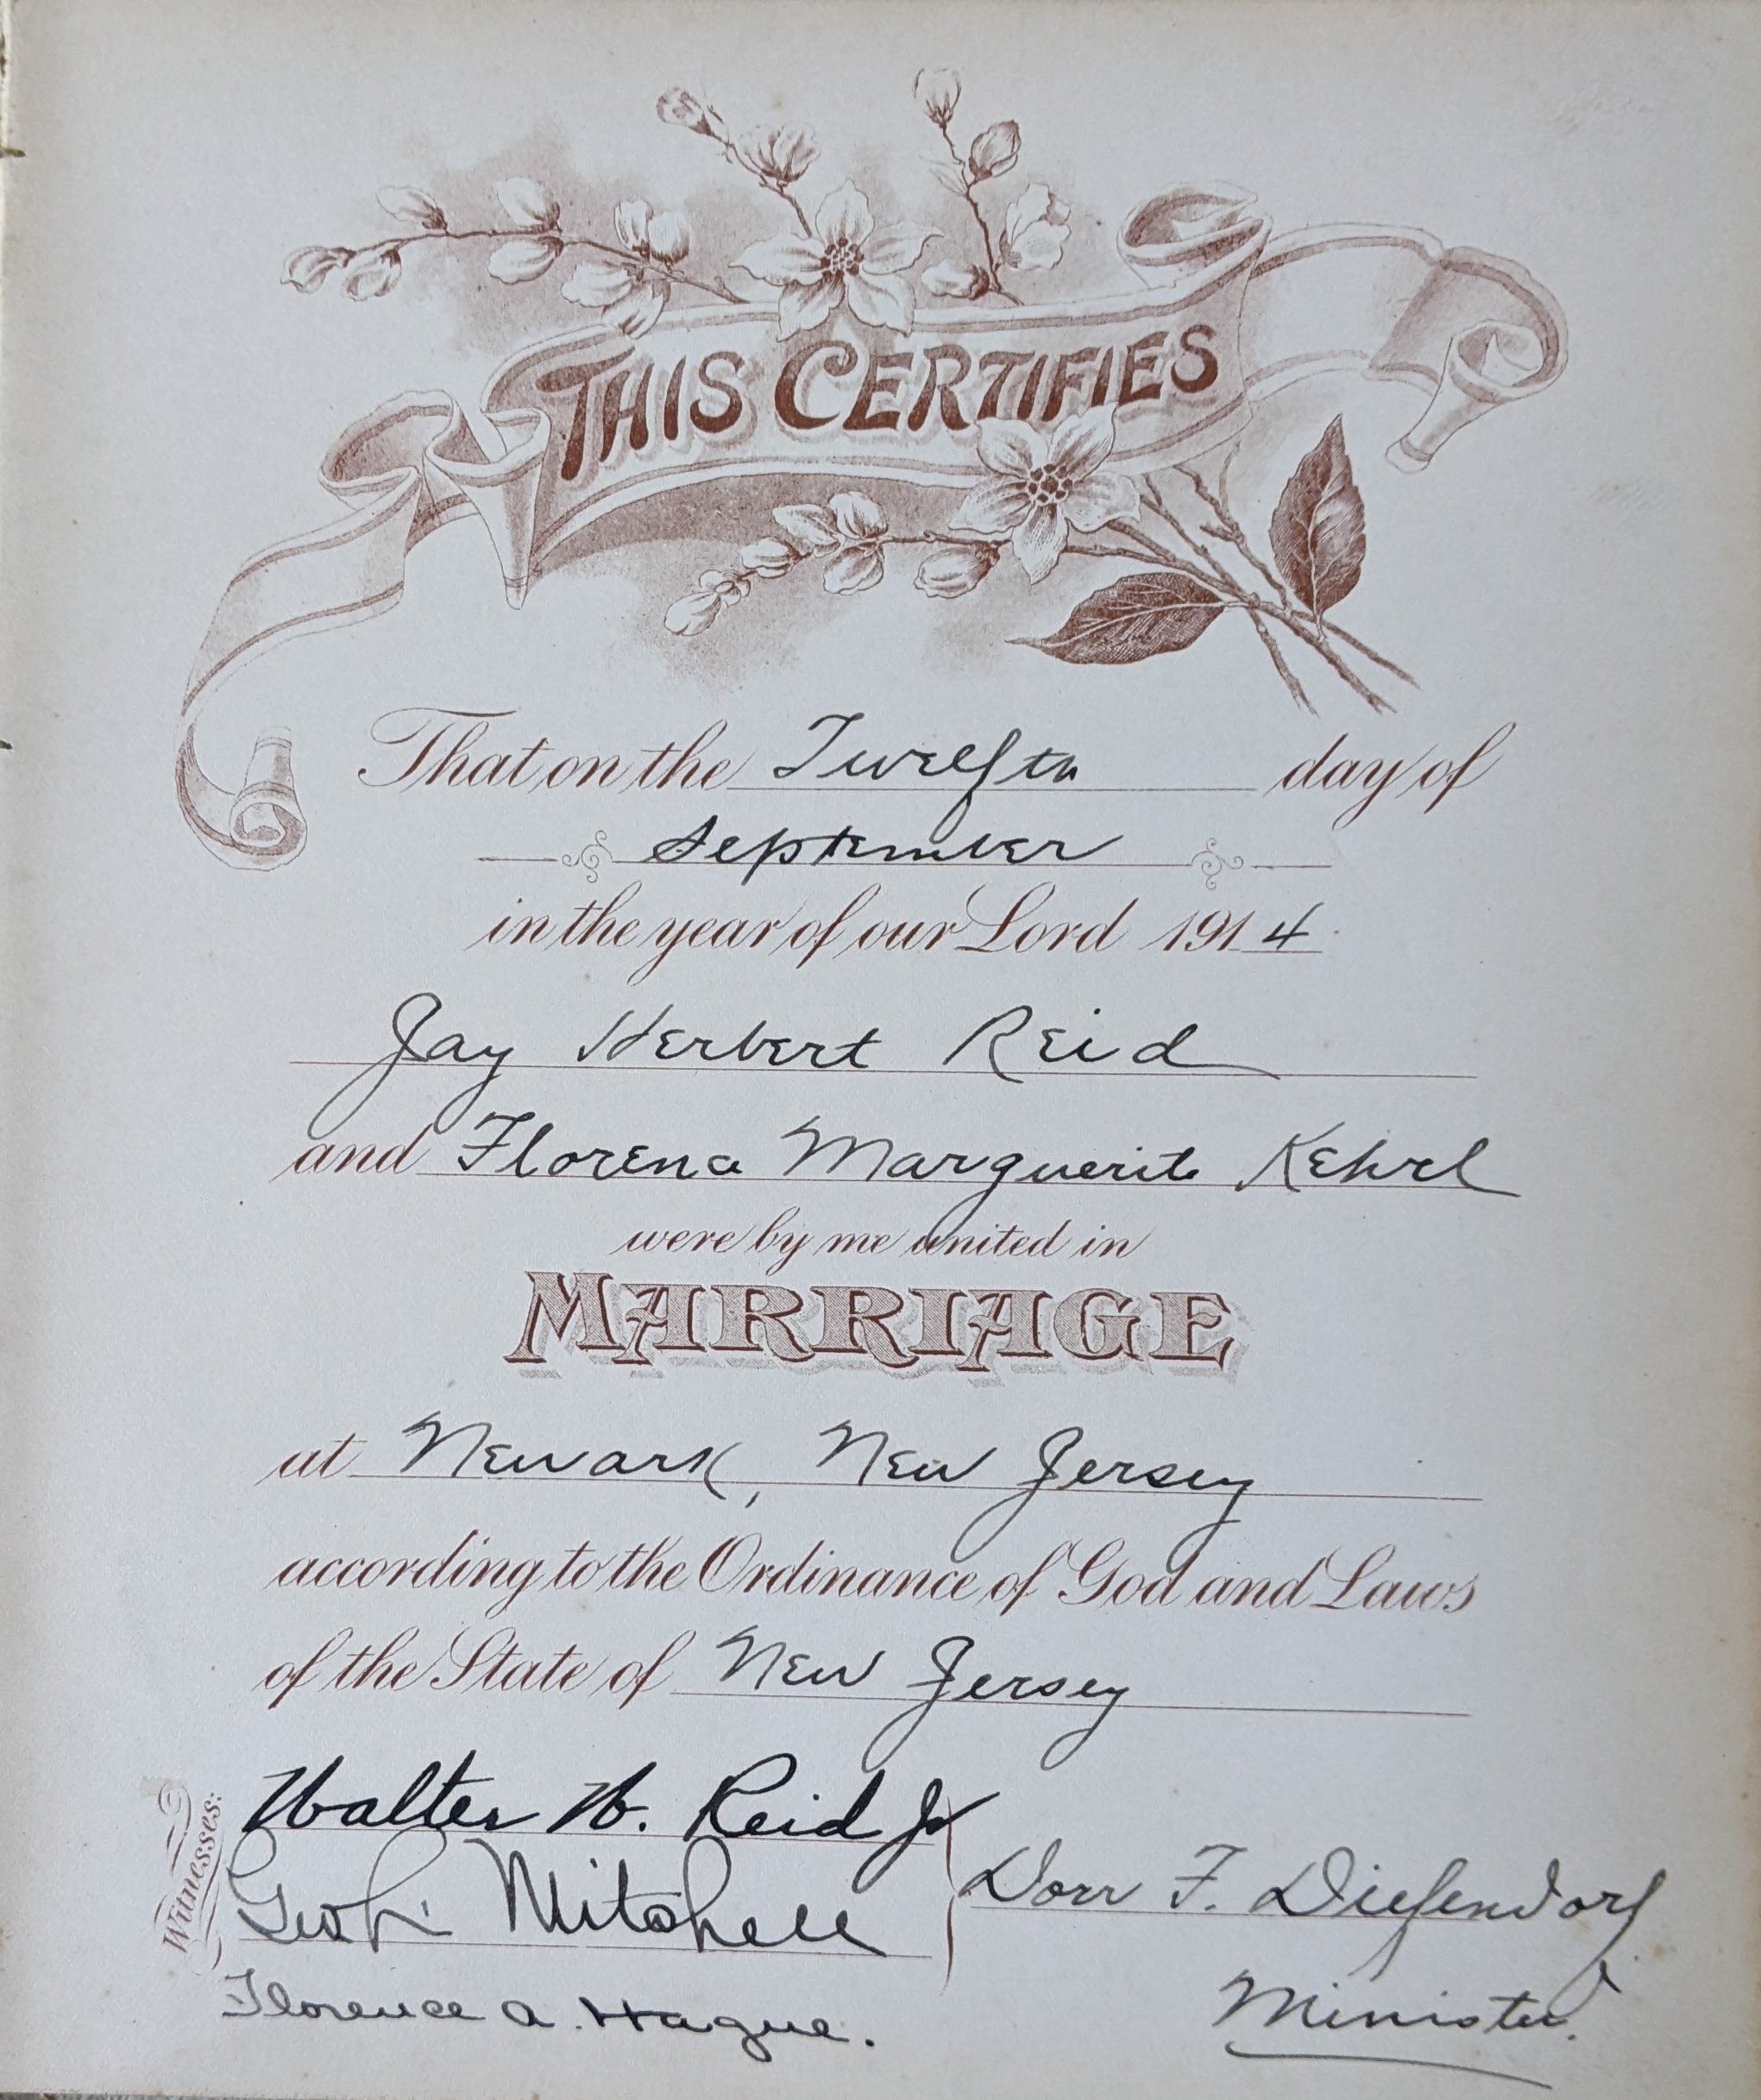 THIS CERTIFIES
That on the Twelfth day of
September
in the year of our Lord 1914
Jay Herbert Reid
and Florena Marguerite Kehrl
were by me united in
MARRIAGE
at Newark, New Jersey
according to the Ordinance of God and Laws
of the State of New Jersey
Witnesses:
Walter W. Reid Jr
Mitchell
Florence A. Hague.
Dorr F. Diefendorf
Minister.